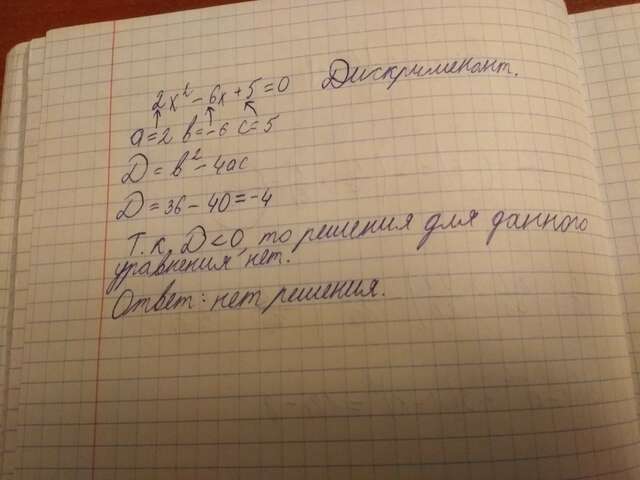 2x² - 6x + 5 = 0 Дискрименант.
a = 2 b = -6 c = 5
D = b² - 4ac
D = 36 - 40 = -4
Т.к. D < 0, то решения для данного
уравнения нет.
Ответ: нет решения.